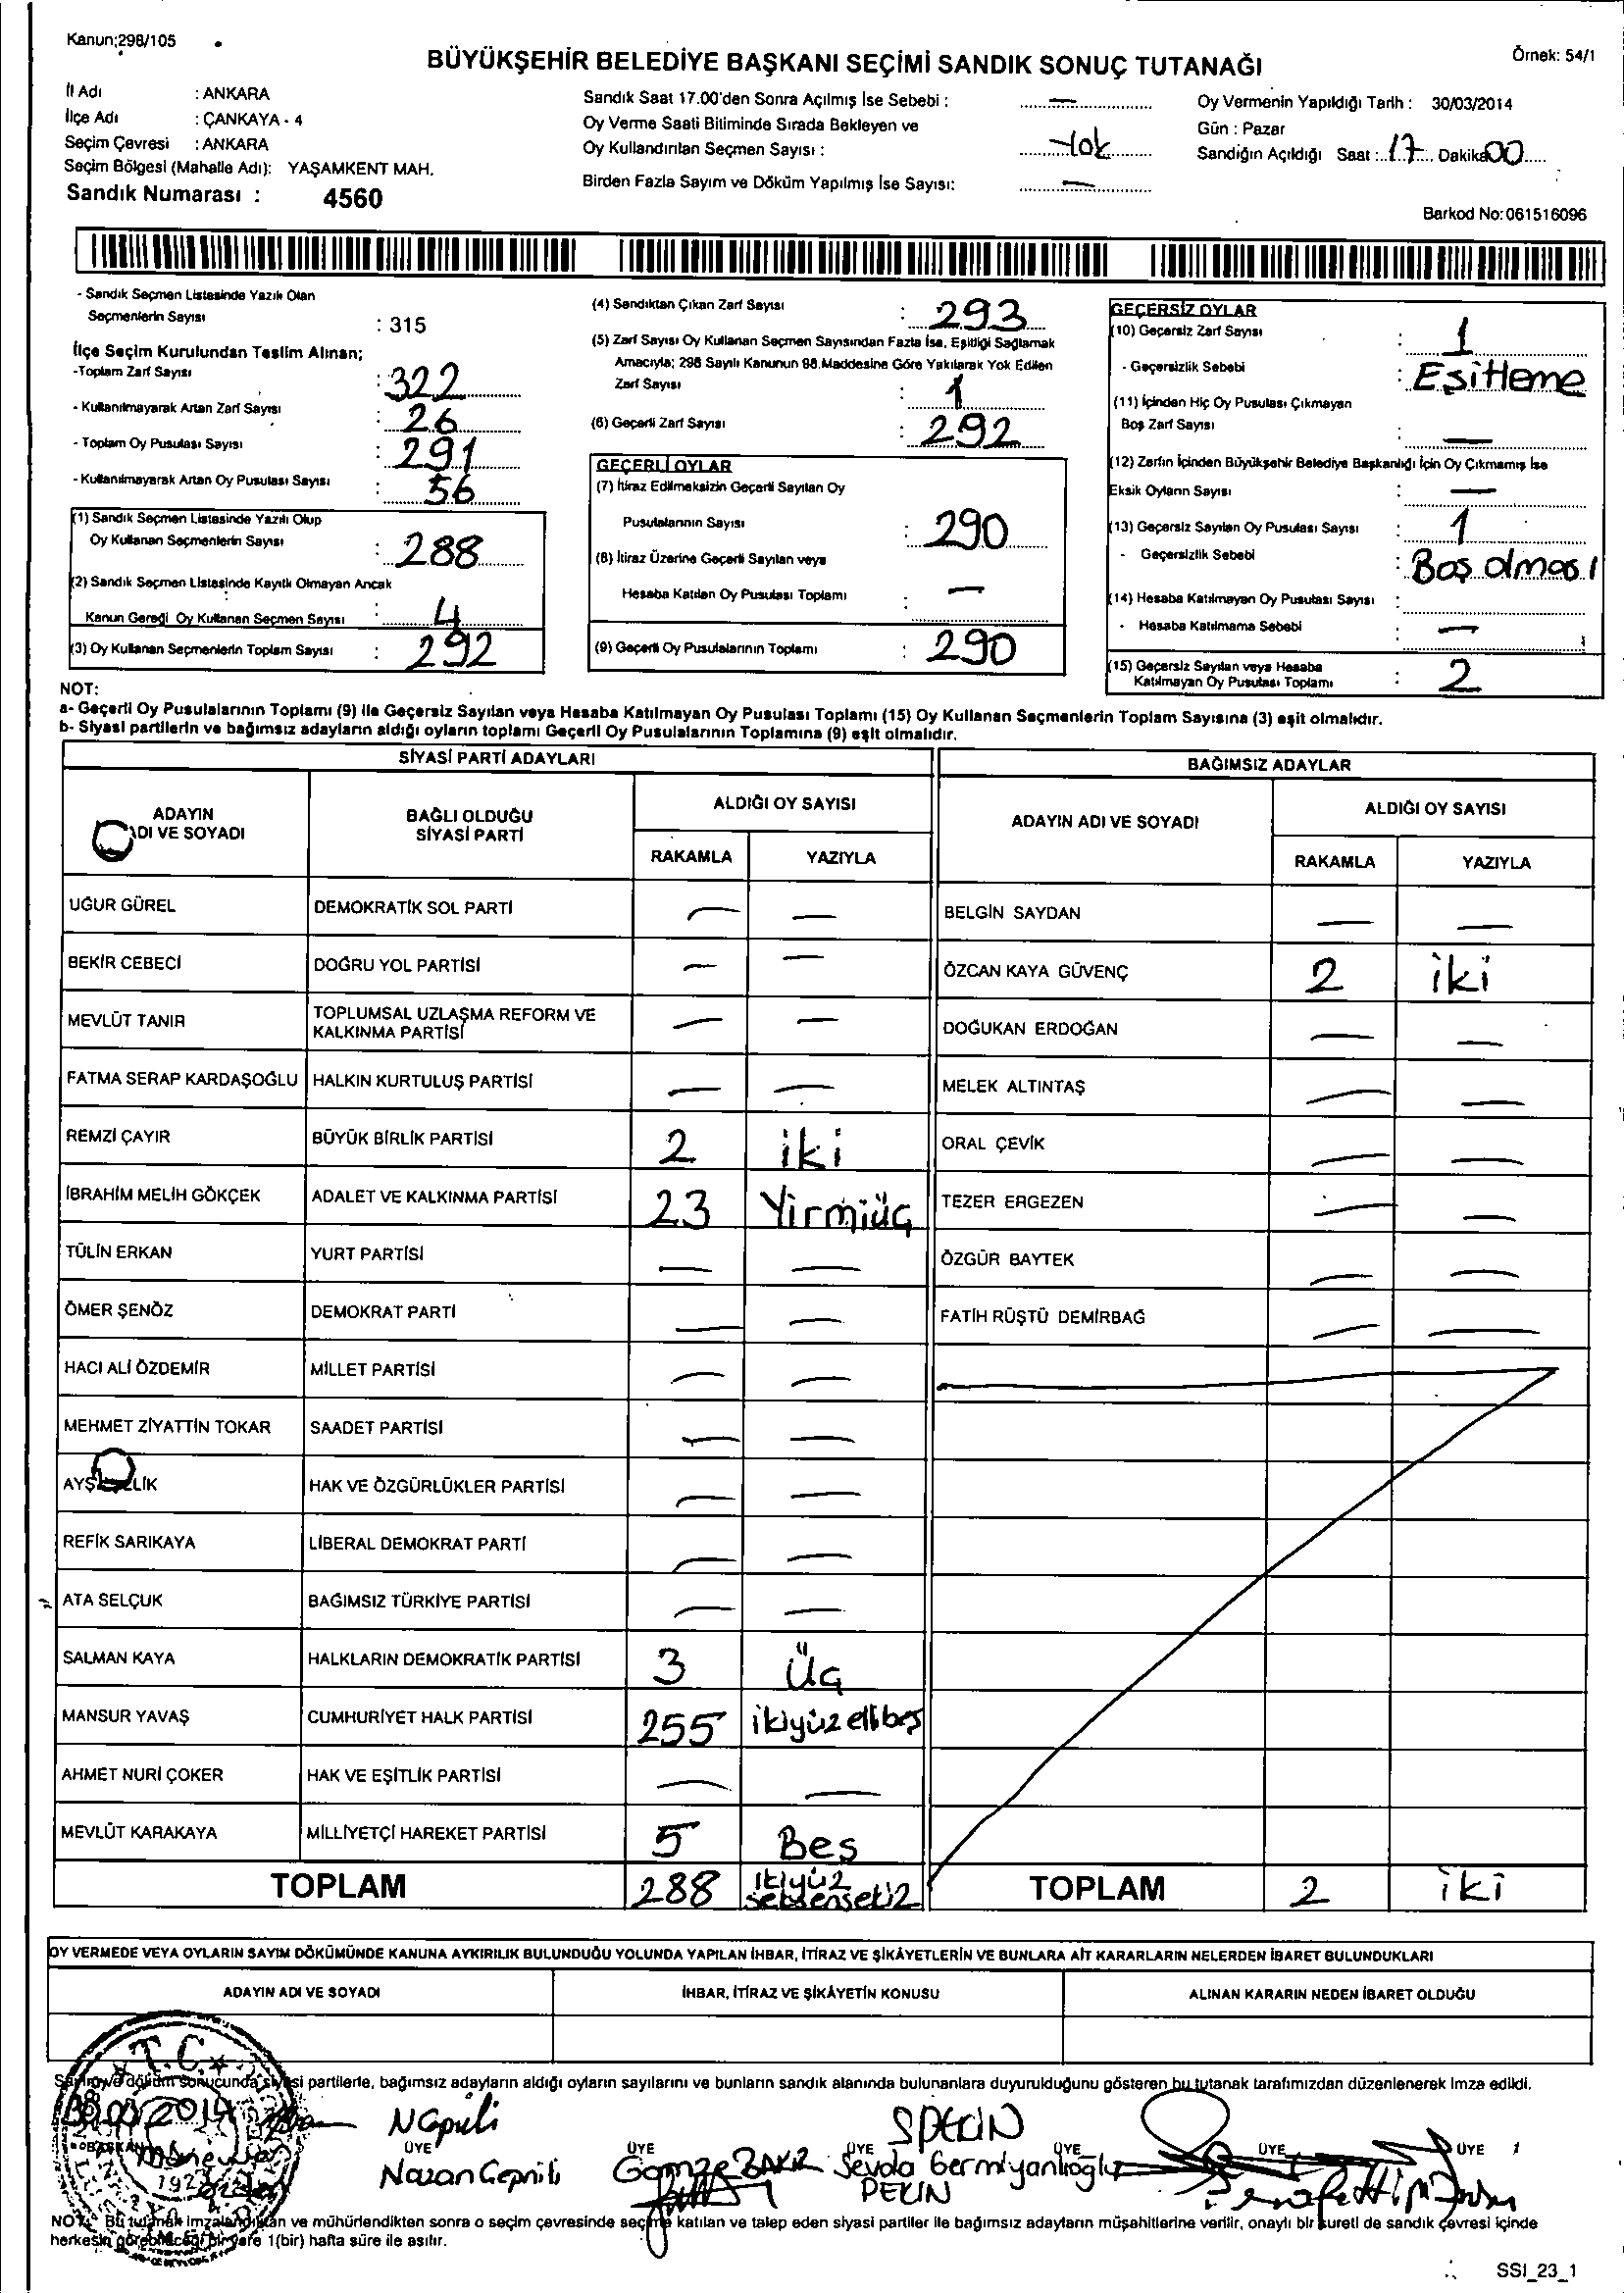 Kanun:298/105
Örnek: 54/1
BÜYÜKŞEHİR BELEDİYE BAŞKANI SEÇİMİ SANDIK SONUÇ TUTANAĞI
İl Adı : ANKARA
İlçe Adı : ÇANKAYA - 4
Seçim Çevresi : ANKARA
Seçim Bölgesi (Mahalle Adı): YAŞAMKENT MAH.
Sandık Numarası : 4560
Sandık Saat 17.00'den Sonra Açılmış İse Sebebi : —
Oy Verme Saati Bitiminde Sırada Bekleyen ve
Oy Kullandırılan Seçmen Sayısı : Yok
Birden Fazla Sayım ve Döküm Yapılmış İse Sayısı: —
Oy Vermenin Yapıldığı Tarih : 30/03/2014
Gün : Pazar
Sandığın Açıldığı Saat : 17 Dakika 00
Barkod No: 061516096
- Sandık Seçmen Listesinde Yazılı Olan
Seçmenlerin Sayısı : 315
İlçe Seçim Kurulundan Teslim Alınan;
-Toplam Zarf Sayısı : 322
- Kullanılmayarak Artan Zarf Sayısı : 26
- Toplam Oy Pusulası Sayısı : 291
- Kullanılmayarak Artan Oy Pusulası Sayısı : 56
(1) Sandık Seçmen Listesinde Yazılı Olup
Oy Kullanan Seçmenlerin Sayısı : 288
(2) Sandık Seçmen Listesinde Kayıtlı Olmayan Ancak
Kanun Gereği Oy Kullanan Seçmen Sayısı : 4
(3) Oy Kullanan Seçmenlerin Toplam Sayısı : 292
(4) Sandıktan Çıkan Zarf Sayısı : 293
(5) Zarf Sayısı Oy Kullanan Seçmen Sayısından Fazla İse, Eşitliği Sağlamak
Amacıyla; 298 Sayılı Kanunun 98.Maddesine Göre Yakılarak Yok Edilen
Zarf Sayısı : 1
(6) Geçerli Zarf Sayısı : 292
GEÇERLİ OYLAR
(7) İtiraz Edilmeksizin Geçerli Sayılan Oy
Pusulalarının Sayısı : 290
(8) İtiraz Üzerine Geçerli Sayılan veya
Hesaba Katılan Oy Pusulası Toplamı : —
(9) Geçerli Oy Pusulalarının Toplamı : 290
GEÇERSİZ OYLAR
(10) Geçersiz Zarf Sayısı : 1
- Geçersizlik Sebebi : Eşitleme
(11) İçinden Hiç Oy Pusulası Çıkmayan
Boş Zarf Sayısı : —
(12) Zarfın İçinden Büyükşehir Belediye Başkanlığı İçin Oy Çıkmamış İse
Eksik Oyların Sayısı : —
(13) Geçersiz Sayılan Oy Pusulası Sayısı : 1
- Geçersizlik Sebebi : Boş olması
(14) Hesaba Katılmayan Oy Pusulası Sayısı :
- Hesaba Katılmama Sebebi : —
(15) Geçersiz Sayılan veya Hesaba
Katılmayan Oy Pusulası Toplamı : 2
NOT:
a- Geçerli Oy Pusulalarının Toplamı (9) ile Geçersiz Sayılan veya Hesaba Katılmayan Oy Pusulası Toplamı (15) Oy Kullanan Seçmenlerin Toplam Sayısına (3) eşit olmalıdır.
b- Siyasi partilerin ve bağımsız adayların aldığı oyların toplamı Geçerli Oy Pusulalarının Toplamına (9) eşit olmalıdır.
SİYASİ PARTİ ADAYLARI
ADAYIN ADI VE SOYADI BAĞLI OLDUĞU SİYASİ PARTİ ALDIĞI OY SAYISI
RAKAMLA YAZIYLA
UĞUR GÜREL DEMOKRATİK SOL PARTİ — —
BEKİR CEBECİ DOĞRU YOL PARTİSİ — —
MEVLÜT TANIR TOPLUMSAL UZLAŞMA REFORM VE KALKINMA PARTİSİ — —
FATMA SERAP KARDAŞOĞLU HALKIN KURTULUŞ PARTİSİ — —
REMZİ ÇAYIR BÜYÜK BİRLİK PARTİSİ 2 iki
İBRAHİM MELİH GÖKÇEK ADALET VE KALKINMA PARTİSİ 23 Yirmiüç
TÜLİN ERKAN YURT PARTİSİ — —
ÖMER ŞENÖZ DEMOKRAT PARTİ — —
HACI ALİ ÖZDEMİR MİLLET PARTİSİ — —
MEHMET ZİYATTİN TOKAR SAADET PARTİSİ — —
HAK VE ÖZGÜRLÜKLER PARTİSİ — —
REFİK SARIKAYA LİBERAL DEMOKRAT PARTİ — —
ATA SELÇUK BAĞIMSIZ TÜRKİYE PARTİSİ — —
SALMAN KAYA HALKLARIN DEMOKRATİK PARTİSİ 3 Üç
MANSUR YAVAŞ CUMHURİYET HALK PARTİSİ 255 ikiyüzellibeş
AHMET NURİ ÇOKER HAK VE EŞİTLİK PARTİSİ — —
MEVLÜT KARAKAYA MİLLİYETÇİ HAREKET PARTİSİ 5 Beş
TOPLAM 288 ikiyüz seksensekiz
BAĞIMSIZ ADAYLAR
ADAYIN ADI VE SOYADI ALDIĞI OY SAYISI
RAKAMLA YAZIYLA
BELGİN SAYDAN — —
ÖZCAN KAYA GÜVENÇ 2 iki
DOĞUKAN ERDOĞAN — —
MELEK ALTINTAŞ — —
ORAL ÇEVİK — —
TEZER ERGEZEN — —
ÖZGÜR BAYTEK — —
FATİH RÜŞTÜ DEMİRBAĞ — —
TOPLAM 2 iki
OY VERMEDE VEYA OYLARIN SAYIM DÖKÜMÜNDE KANUNA AYKIRILIK BULUNDUĞU YOLUNDA YAPILAN İHBAR, İTİRAZ VE ŞİKÂYETLERİN VE BUNLARA AİT KARARLARIN NELERDEN İBARET BULUNDUKLARI
ADAYIN ADI VE SOYADI İHBAR, İTİRAZ VE ŞİKÂYETİN KONUSU ALINAN KARARIN NEDEN İBARET OLDUĞU
T.C.
Sayım ve döküm sonucunda siyasi partilerle, bağımsız adayların aldığı oyların sayılarını ve bunların sandık alanında bulunanlara duyurulduğunu gösteren bu tutanak tarafımızdan düzenlenerek imza edildi.
30.03.2014
BAŞKAN ÜYE ÜYE ÜYE ÜYE ÜYE ÜYE
Nazan Gamze Sevda Germiyanlıoğlu
PEKİN
NOT: Bu tutanak imzalandıktan ve mühürlendikten sonra o seçim çevresinde seçime katılan ve talep eden siyasi partiler ile bağımsız adayların müşahitlerine verilir, onaylı bir sureti de sandık çevresi içinde
herkesin görebileceği bir yere 1(bir) hafta süre ile asılır.
SSI_23_1